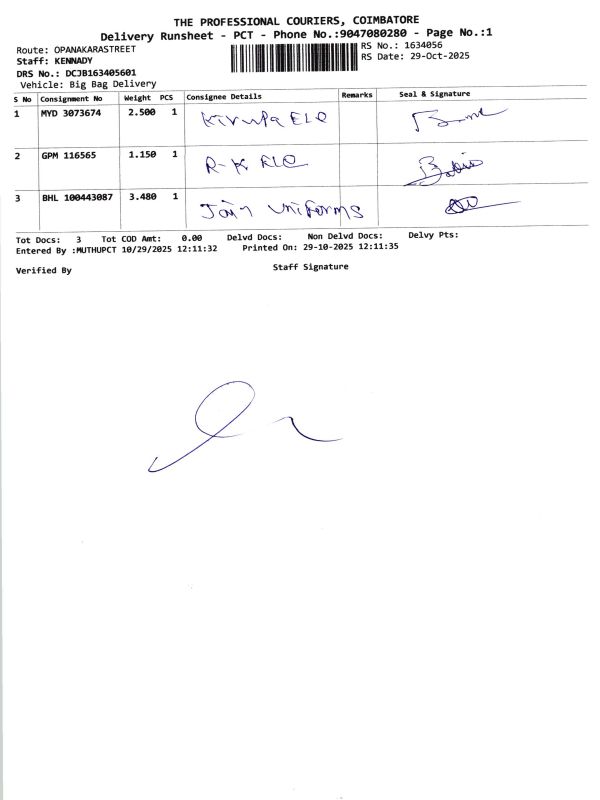 THE PROFESSIONAL COURIERS, COIMBATORE
Delivery Runsheet - PCT - Phone No.:9047080280 - Page No.:1
Route: OPANAKARASTREET
RS No.: 1634056
Staff: KENNADY
RS Date: 29-Oct-2025
DRS No.: DCJB163405601
Vehicle: Big Bag Delivery
S No Consignment No Weight PCS Consignee Details Remarks Seal & Signature
1 MYD 3073674 2.500 1 Kirupa ELE
2 GPM 116565 1.150 1 R-K ELE
3 BHL 100443087 3.480 1 Jain Uniforms
Tot Docs: 3 Tot COD Amt: 0.00 Delvd Docs: Non Delvd Docs: Delvy Pts:
Entered By :MUTHUPCT 10/29/2025 12:11:32 Printed On: 29-10-2025 12:11:35
Verified By Staff Signature